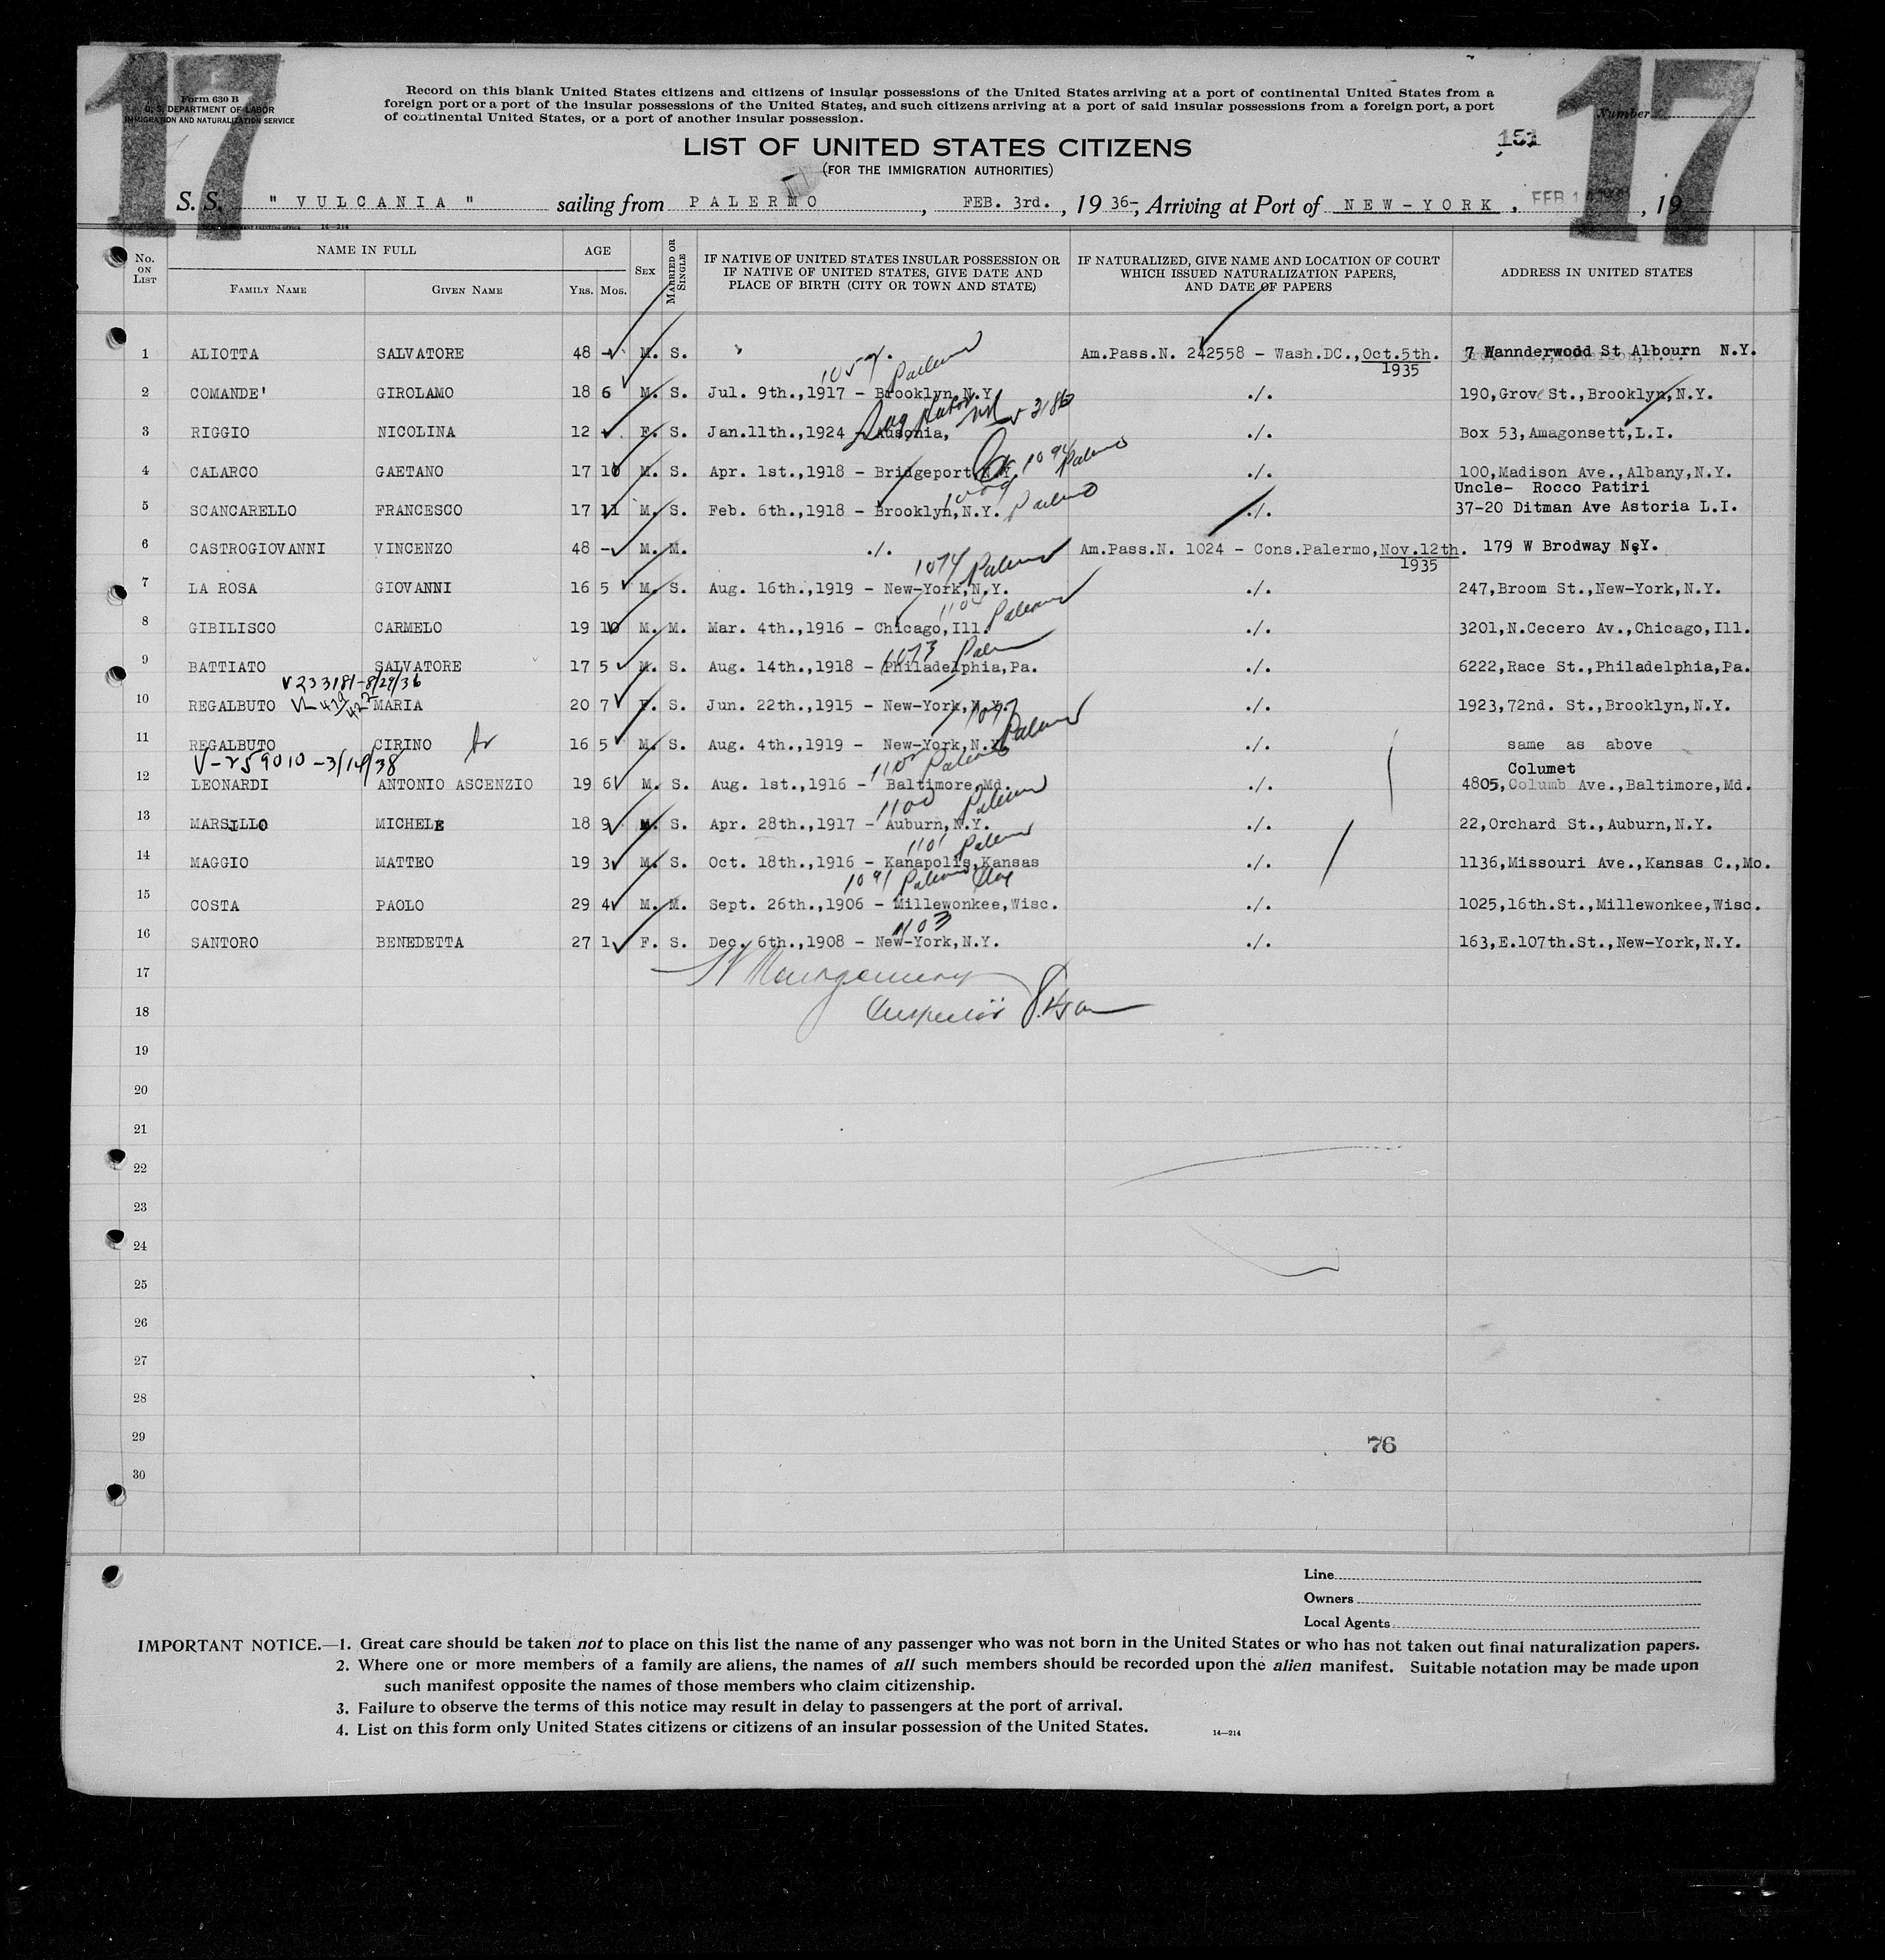 17
17
Form 630 B
U. S. DEPARTMENT OF LABOR
IMMIGRATION AND NATURALIZATION SERVICE
Record on this blank United States citizens and citizens of insular possessions of the United States arriving at a port of continental United States from a
foreign port or a port of the insular possessions of the United States, and such citizens arriving at a port of said insular possessions from a foreign port, a port
of continental United States, or a port of another insular possession.
Number
151
LIST OF UNITED STATES CITIZENS
(FOR THE IMMIGRATION AUTHORITIES)
S. S. " VULCANIA " sailing from PALERMO, FEB. 3rd., 19 36-, Arriving at Port of NEW-YORK, FEB 1, 19
14-214
No. ON LIST
NAME IN FULL
FAMILY NAME GIVEN NAME
AGE
YRS. MOS.
SEX
MARRIED OR SINGLE
IF NATIVE OF UNITED STATES INSULAR POSSESSION OR
IF NATIVE OF UNITED STATES, GIVE DATE AND
PLACE OF BIRTH (CITY OR TOWN AND STATE)
IF NATURALIZED, GIVE NAME AND LOCATION OF COURT
WHICH ISSUED NATURALIZATION PAPERS,
AND DATE OF PAPERS
ADDRESS IN UNITED STATES
1 ALIOTTA SALVATORE 48 - M. S. Am.Pass.N. 242558 - Wash.DC.,Oct.5th. 7 Wannderwood St Albourn N.Y.
1935
Palermo
2 COMANDE' GIROLAMO 18 6 M. S. Jul. 9th.,1917 - Brooklyn,N.Y. ./. 190,Grove St.,Brooklyn,N.Y.
3 RIGGIO NICOLINA 12 - F. S. Jan.11th.,1924 - Ausonia, ./. Box 53,Amagonsett,L.I.
1094 Palermo
4 CALARCO GAETANO 17 10 M. S. Apr. 1st.,1918 - Bridgeport,N.Y. ./. 100,Madison Ave.,Albany,N.Y.
Palermo
Uncle- Rocco Patiri
5 SCANCARELLO FRANCESCO 17 11 M. S. Feb. 6th.,1918 - Brooklyn,N.Y. ./. 37-20 Ditman Ave Astoria L.I.
6 CASTROGIOVANNI VINCENZO 48 - M. M. ./. Am.Pass.N. 1024 - Cons.Palermo,Nov.12th. 179 W Brodway N.Y.
1935
1074 Palermo
7 LA ROSA GIOVANNI 16 5 M. S. Aug. 16th.,1919 - New-York,N.Y. ./. 247,Broom St.,New-York,N.Y.
Palermo
8 GIBILISCO CARMELO 19 10 M. M. Mar. 4th.,1916 - Chicago,Ill. ./. 3201,N.Cecero Av.,Chicago,Ill.
1073 Palm
9 BATTIATO SALVATORE 17 5 M. S. Aug. 14th.,1918 - Philadelphia,Pa. ./. 6222,Race St.,Philadelphia,Pa.
V233181-8/27/36
10 REGALBUTO MARIA 20 7 F. S. Jun. 22th.,1915 - New-York,N.Y. ./. 1923,72nd. St.,Brooklyn,N.Y.
1097 Palermo
11 REGALBUTO CIRINO 16 5 M. S. Aug. 4th.,1919 - New-York,N.Y. ./. same as above
V-259010-3/14/38
1102 Palermo
Columet
12 LEONARDI ANTONIO ASCENZIO 19 6 M. S. Aug. 1st.,1916 - Baltimore,Md. ./. 4805,Columb Ave.,Baltimore,Md.
1100 Palermo
13 MARSILLO MICHELE 18 9 M. S. Apr. 28th.,1917 - Auburn,N.Y. ./. 22,Orchard St.,Auburn,N.Y.
1101 Palermo
14 MAGGIO MATTEO 19 3 M. S. Oct. 18th.,1916 - Kanapolis,Kansas ./. 1136,Missouri Ave.,Kansas C.,Mo.
1091 Palermo
15 COSTA PAOLO 29 4 M. M. Sept. 26th.,1906 - Millewonkee,Wisc. ./. 1025,16th.St.,Millewonkee,Wisc.
1103
16 SANTORO BENEDETTA 27 1 F. S. Dec. 6th.,1908 - New-York,N.Y. ./. 163,E.107th.St.,New-York,N.Y.
17 Montgomery
18 Inspector
19
20
21
22
23
24
25
26
27
28
29
76
30
Line
Owners
Local Agents
IMPORTANT NOTICE.—1. Great care should be taken not to place on this list the name of any passenger who was not born in the United States or who has not taken out final naturalization papers.
2. Where one or more members of a family are aliens, the names of all such members should be recorded upon the alien manifest. Suitable notation may be made upon
such manifest opposite the names of those members who claim citizenship.
3. Failure to observe the terms of this notice may result in delay to passengers at the port of arrival.
4. List on this form only United States citizens or citizens of an insular possession of the United States.
14-214